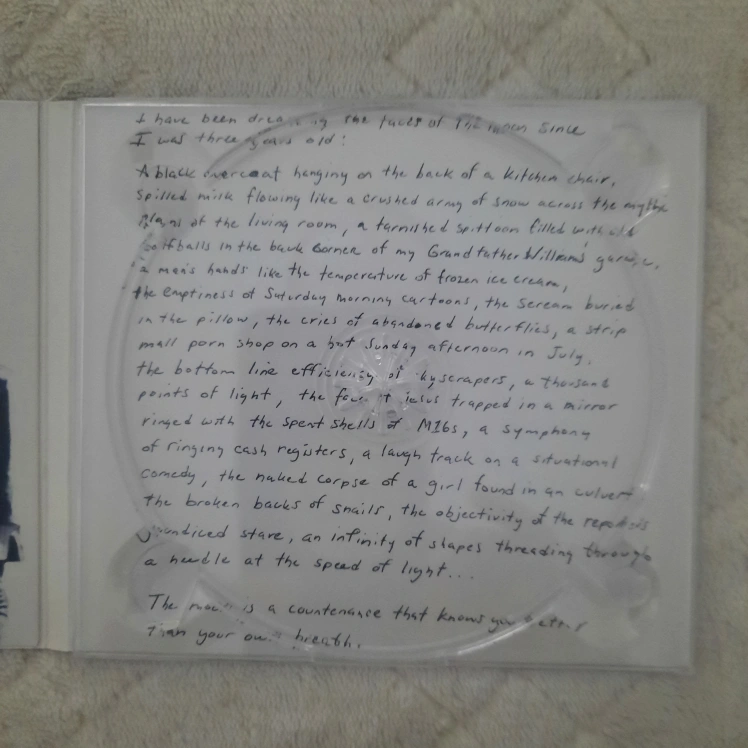 I have been dreaming the faces of The moon Since
I was three years old:
A black overcoat hanging on the back of a kitchen chair,
Spilled milk flowing like a crushed army of snow across the mythic
plains of the living room, a tarnished spittoon filled with old
golfballs in the back corner of my Grandfather Williams' garage,
a man's hands like the temperature of frozen ice cream,
the emptiness of Saturday morning cartoons, the scream buried
in the pillow, the cries of abandoned butterflies, a strip
mall porn shop on a hot Sunday afternoon in July,
the bottom line efficiency of skyscrapers, a thousand
points of light, the face of jesus trapped in a mirror
ringed with the spent shells of M16s, a symphony
of ringing cash registers, a laugh track on a situational
comedy, the naked corpse of a girl found in an culvert
the broken backs of snails, the objectivity of the reporters
jaundiced stare, an infinity of shapes threading through
a needle at the speed of light...
The moon is a countenance that knows you better
than your own breath.